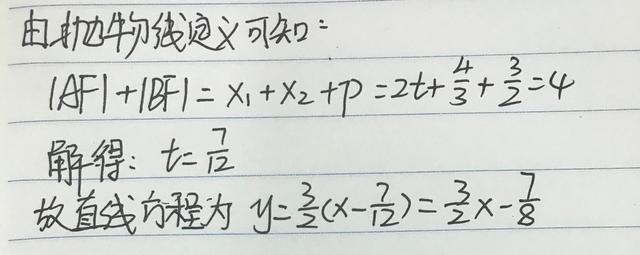 由抛物线定义可知:
|AF|+|BF|= x₁+x₂+p =2t+4/3+3/2=4
解得: t=7/12
故直线方程为 y=3/2(x-7/12)=3/2x-7/8